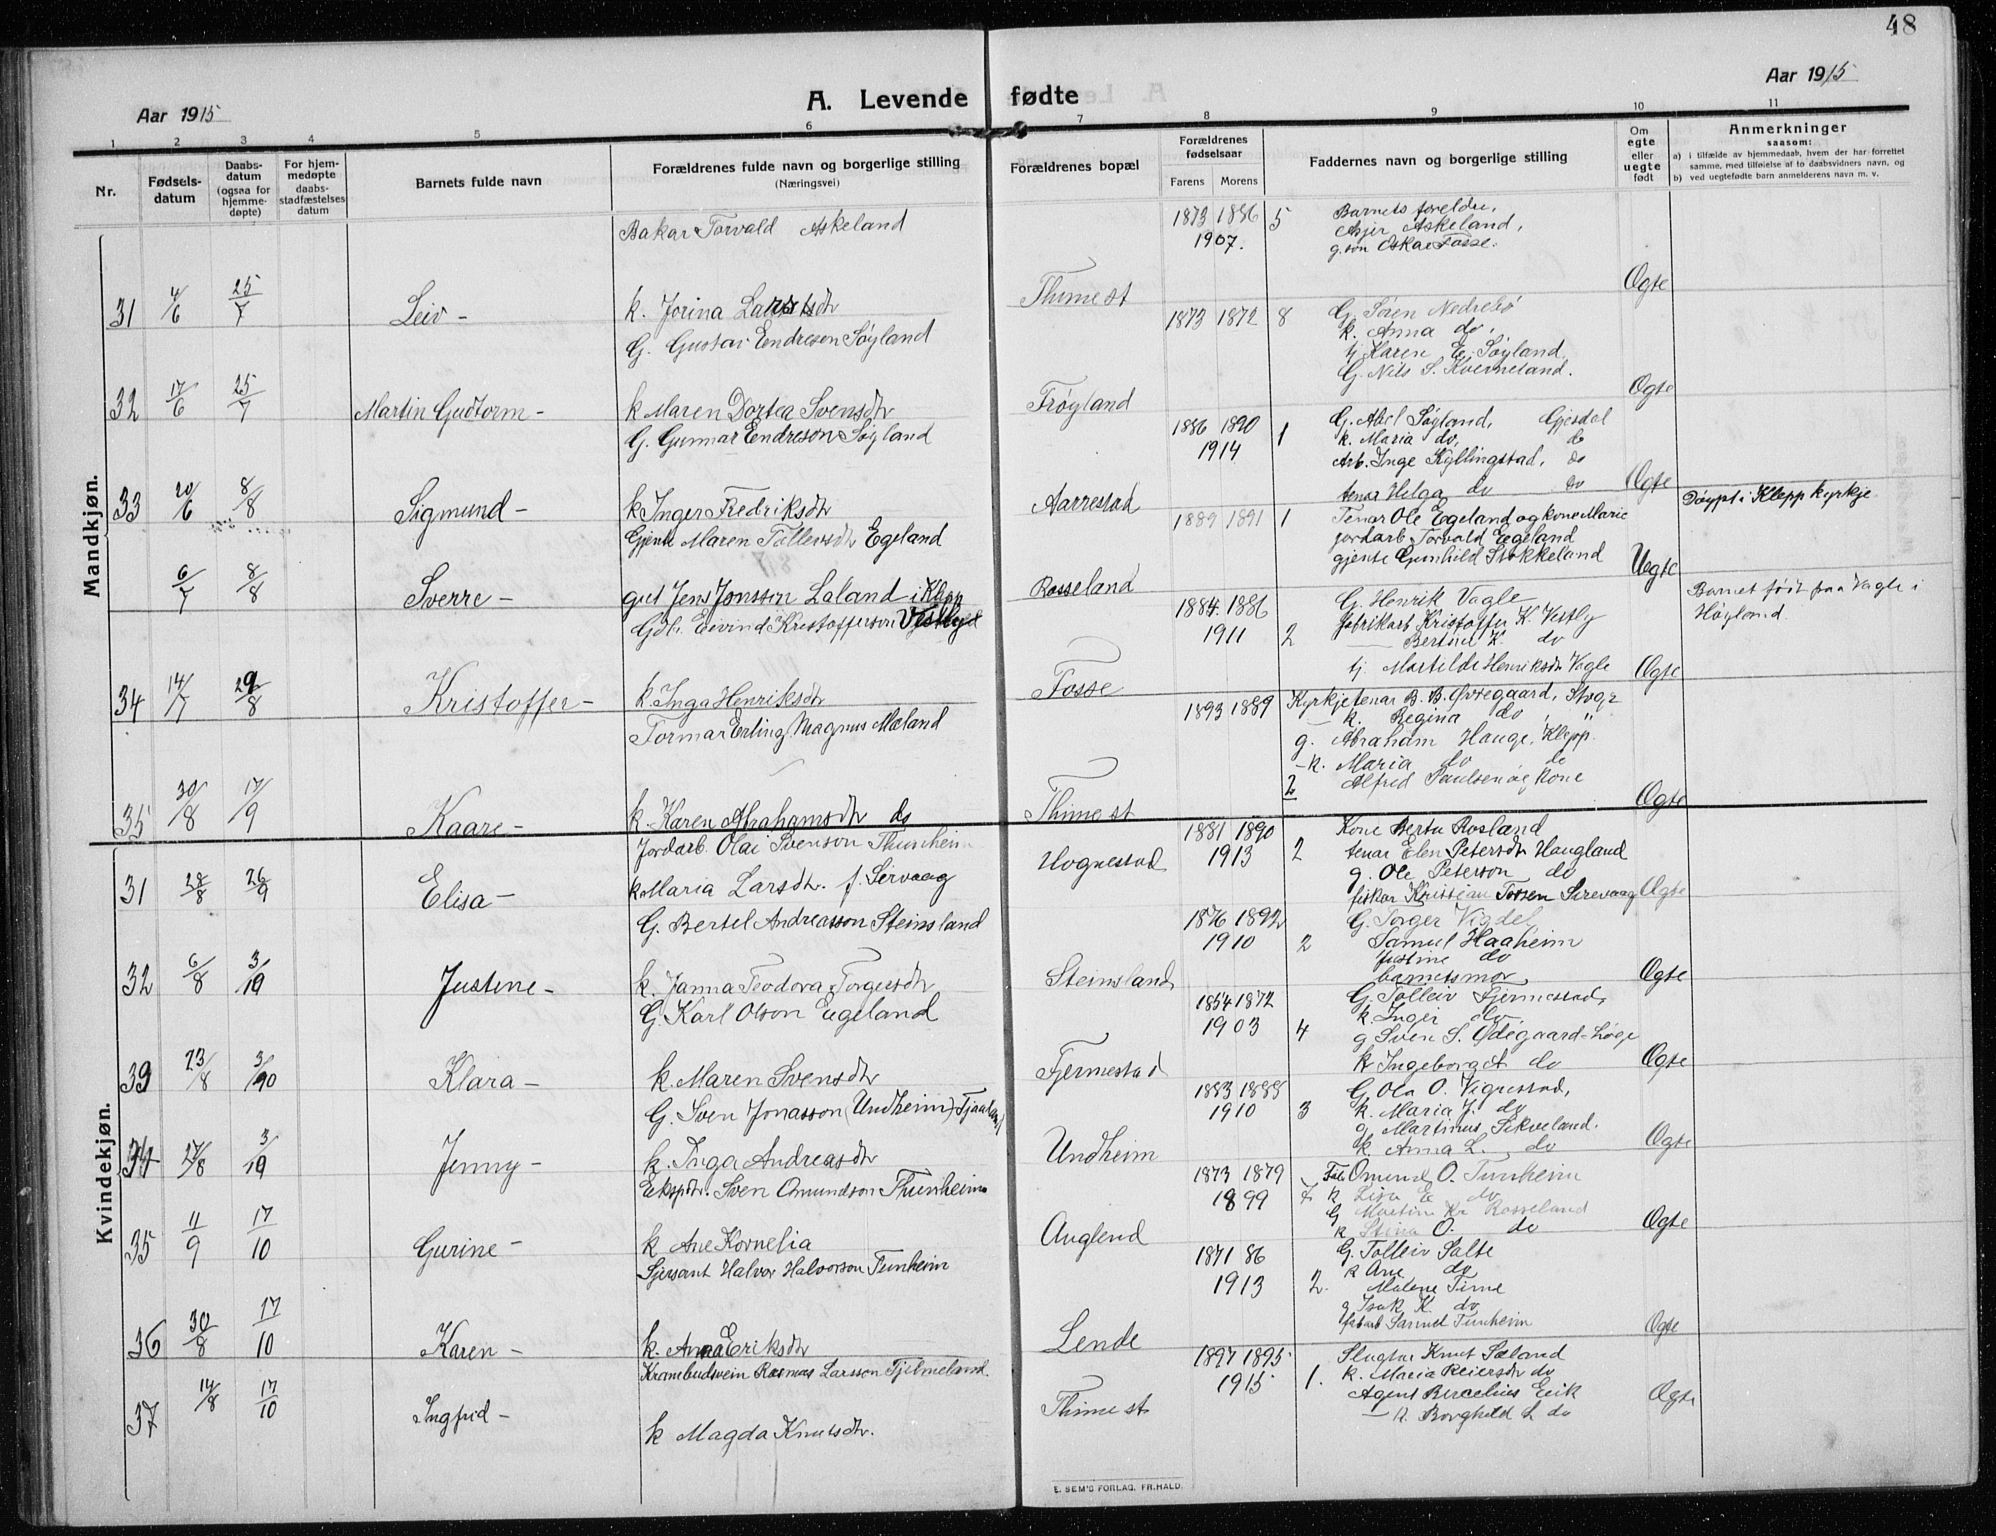 48
Aar 1915
A. Levende fødte
Aar 1915
1 2 3 4 5 6 7 8 9 10 11
Nr.
Fødsels-
datum
Daabs-
datum
(ogsaa for
hjemme-
døpte)
For hjem-
medøpte
daabs-
stadfæstelses
datum
Barnets fulde navn
Forældrenes fulde navn og borgerlige stilling
(Næringsvei)
Forældrenes bopæl
Forældrenes
fødselsaar
Farens Morens
Faddernes navn og borgerlige stilling
Om
egte
eller
uegte
født
Anmerkninger
saasom:
a) i tilfælde av hjemmedaab, hvem der har forrettet
samme, med tilføielse af to daabsvidners navn, og
b) ved uegtefødte barn anmelderens navn m. v.
Mandkjøn.
Bakar Torvald Askeland
1873 1886 5
1907.
Barnets foreldre,
Asjer Askeland,
g. søn Oskar Fosse.
31 4/6 25/7 Leiv - k. Jorina Thime st Ægte
G. Gustav Endreson Søyland
1873 1872 8
G. Søren Nedrebø
k. Anna do.
tj. Karen E. Søyland
G. Nils S. Kverneland.
32 17/6 25/7 Martin Gudtorm - k Maren Dortea Svensdtr Frøyland Ægte
G. Gunnar Endreson Søyland
1886 1890 1
1914
G. Abel Søyland, Gjesdal
k. Maria do, do
Arb. Inge Kyllingstad, do
tenar Helga do do
33 20/6 8/8 Sigmund - k Inger Fredriksdtr Aarrestad Ægte
Døypt i Klepp kyrkje
Gjente Maren Tollevsdtr Egeland
1889 1891 1
Tenar Ole Egeland og kone Marie
jordarb. Torvald Egeland
gjente Gunhild Stokkeland
6/7 8/8 Sverre - gut Jens Jonsson Laland i Klepp Rosseland Uegte
Barnet født paa Vagle i
Høyland.
Eivind Kristofferson
1884. 1886
1911 2
G. Henrik Vagle
fabrikarb Kristoffer K. Vestly
Bertine K. do
tj. Martilde Henriksdtr Vagle
34 14/7 29/8 Kristoffer - k Inga Henriksdtr Fosse Ægte
Formar Erling Magnus Mæland
1893 1889
Kyrkjetenar B. B. Øvregaard,
k. Regina do, "
g. Abraham Hauge, Klepp.
- k. Maria do do
2 Alfred Paulsen og kone
35 30/8 17/9 Kaare - k. Karen Abrahamsdtr do Thime st Ægte
Kvindekjøn.
Jordarb. Olai Svenson Thunheim
1881 1890
1913 2
Kone Berta Rosland
tenar Elen Petersdtr Haugland
g. Ole Peterson do
fiskar Kristian Tossen Sirevaag
31 28/8 26/9 Elisa - k Maria Larsdtr. f. Servaag Hognestad Ægte
G. Bertel Andreasson Steinsland
1876 1892
1910 2
G. Torger Vigdel
Samuel Haaheim
Justine do
barnets mor
32 6/8 3/10 Justine - k. Janna Teodora Torgersdtr Steinsland Ægte
G. Karl Olson Egeland
1854 1872
1903 4
G. Tolleiv Fjermestad,
k. Inger do
g Sven S. Ødegaard
k Ingeborg do
39 23/8 3/10 Klara - k. Maren Svensdtr Fjermestad Ægte
G. Sven Jonasson (Undheim)
1883 1888
1910 3
G. Ola O. Vigrestad,
k. Maria J. do
g Martinus Sikveland.
k Anna L. do
34 27/8 3/10 Jenny - k. Inga Andreasdtr Undheim Ægte
Ekspdtr. Sven Omundson Thunheim
1873 1879
1899 7
Omund O. Tunheim
k Lisa E do
G Martin Kr Rosseland
k Stina O. do
35 11/9 17/10 Gurine - k Ane Kornelia Auglend Ægte
Sjersant Halvor Halvorson Tunheim
1871 86
1913 2.
G. Tolleiv Salte
k Ane do
Malene Time
g Isak K. do
Samuel Tunheim
36 30/8 17/10 Karen - k. Anna Eriksdtr Lende Ægte
Krambudsvein Rasmus Larsson Tjelmeland.
1897 1895
1915 1.
Slagtar Knut Sæland
k. Maria Reiersdtr do
Agent Bercelius Eeik
- k Borghild L do
37 14/8 17/10 Ingfrid - k Magda Knutsdtr. Thime st Ægte
E. SEM'S FORLAG, FR.HALD.